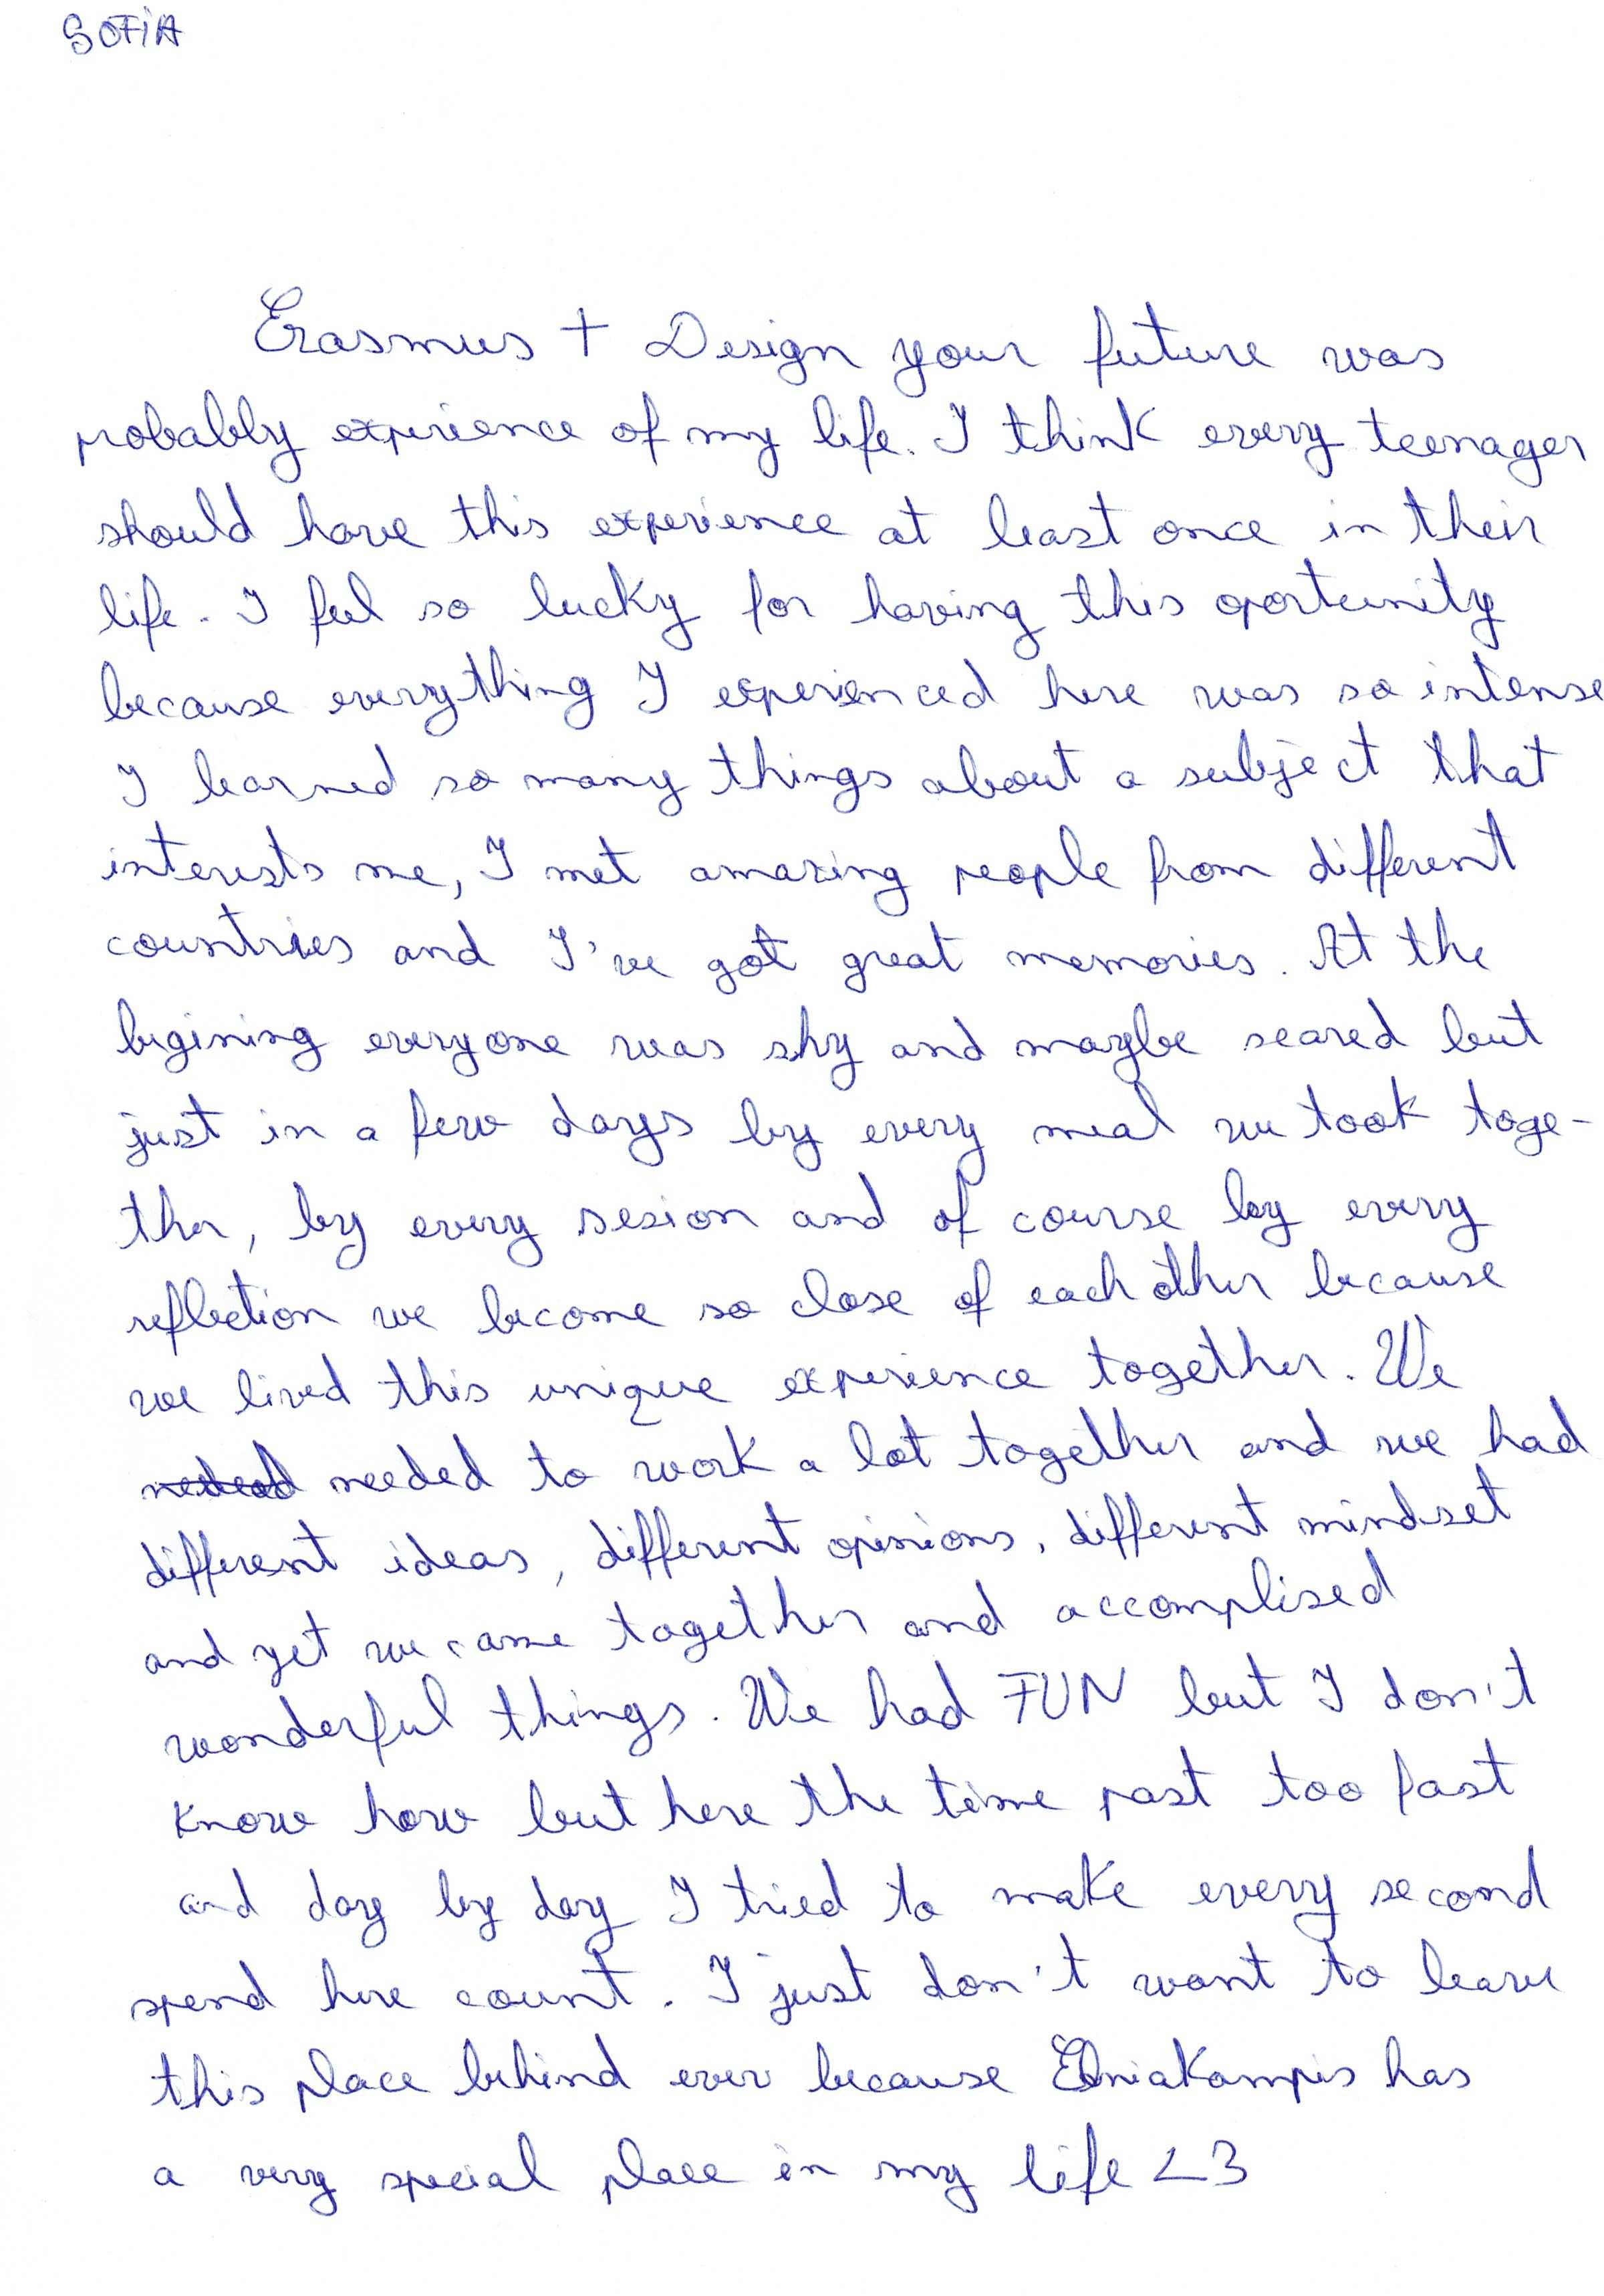 SOFIA
Erasmus + Design your future was
probably experience of my life. I think every teenager
should have this experience at least once in their
life. I feel so lucky for having this oportunity
because everything I experienced here was so intense
I learned so many things about a subject that
interests me, I met amazing people from different
countries and I've got great memories. At the
begining everyone was shy and maybe scared but
just in a few days by every meal we took toge-
ther, by every sesion and of course by every
reflection we become so close of each other because
we lived this unique experience together. We
needed to work a lot together and we had
different ideas, different opinions, different mindset
and yet we came together and accomplised
wonderful things. We had FUN but I don't
know how but here the time past too fast
and day by day I tried to make every second
spend here count. I just don't want to leave
this place behind ever because Elniakampis has
a very special place in my life <3